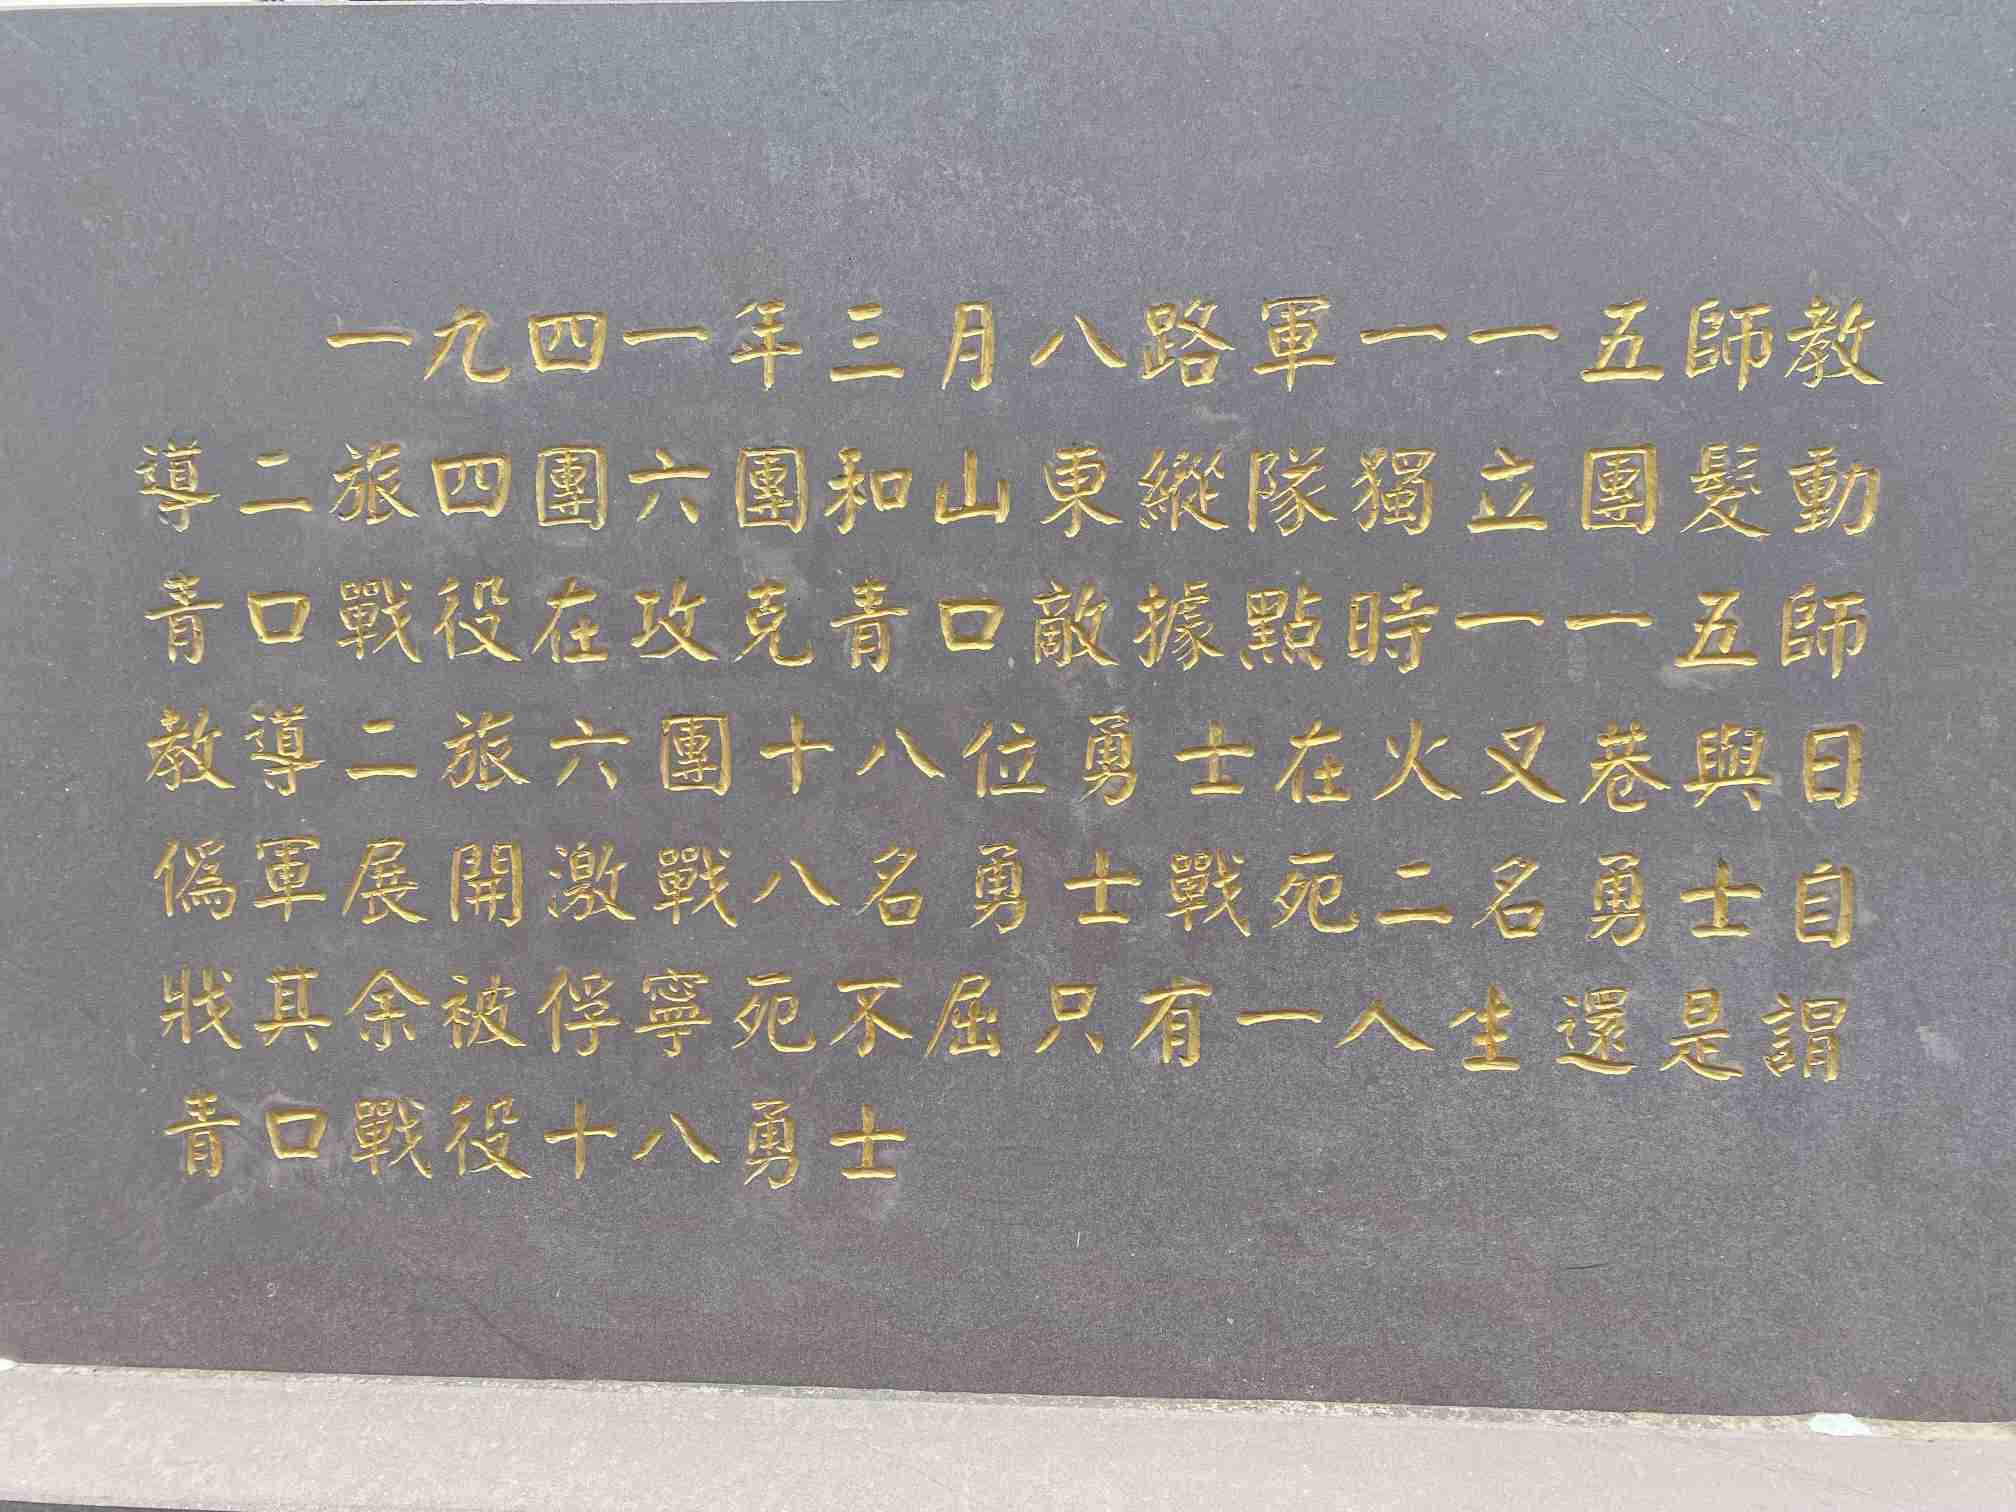 一九四一年三月八路軍一一五師教
導二旅四團六團和山東縱隊獨立團髮動
青口戰役在攻克青口敵據點時一一五師
教導二旅六團十八位勇士在火叉巷與日
僞軍展開激戰八名勇士戰死二名勇士自
戕其余被俘寧死不屈只有一人生還是謂
青口戰役十八勇士